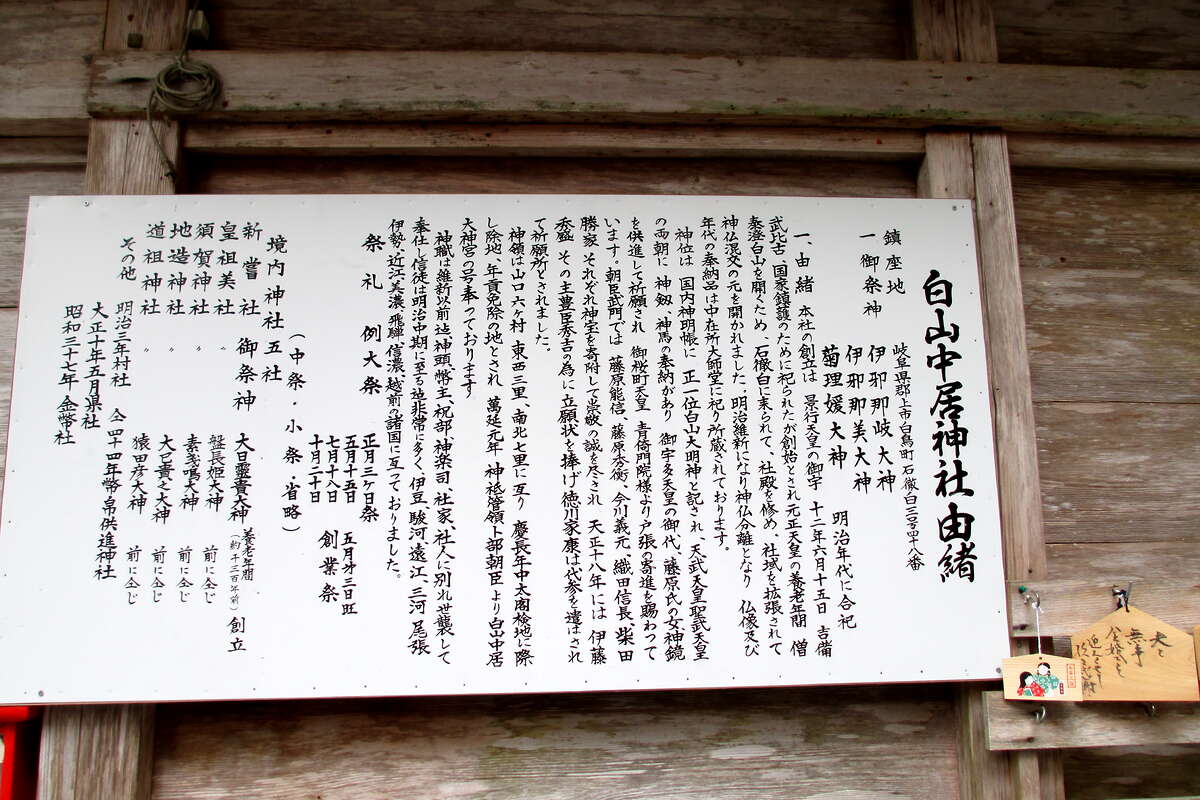 白山中居神社由緒
鎮座地 岐阜県郡上市白鳥町石徹白三号四十八番
一、御祭神 伊邪那岐大神
伊邪那美大神
菊理媛大神 明治年代に合祀
一、由緒 本社の創立は 景行天皇の御宇 十二年六月十五日 吉備
武比古、国家鎮護のために祀られたが創始とされ元正天皇の養老年間 僧
泰澄白山を開くため、石徹白に来られて、社殿を修め、社域を拡張されて
神仏混交の元を開かれました。明治維新になり神仏分離となり 仏像及び
年代の奉納品は中在所大師堂に祀り所蔵されております。
神位は 国内神明帳に 正一位白山大明神と記され、天武天皇聖武天皇
の両朝に 神剱、神馬の奉納があり 御宇多天皇の御代、藤原氏の女神鏡
を供進して祈願され 御桜町天皇 青倚門院様より戸張の寄進を賜わって
います。朝臣武門では 藤原能信、藤原秀衡、今川義元、織田信長、柴田
勝家、それぞれ神宝を寄附して崇敬の誠を尽され 天正十八年には 伊藤
秀盛 その主豊臣秀吉の為に立願状を捧げ徳川家康は代参を遣はされ
て祈願所とされました。
神領は山口六ヶ村 東西三里、南北七里に亙り 慶長年中太閤検地に際
し除地、年貢免除の地とされ 萬延元年 神祇管領卜部朝臣より白山中居
大神宮の号奉っております
神職は維新以前迠神頭、幣主、祝部 神楽司 社家、社人に別れ世襲して
奉仕し信徒は明治中期に至る迠非常に多く、伊豆 駿河、遠江、三河 尾張
伊勢、近江美濃、飛騨、信濃、越前の諸国に亙っておりました。
祭礼 例大祭 正月三ヶ日祭
五月十五日 五月㐧三日旺
七月十八日 創業祭
十月二十日
(中祭・小祭、省略)
境内神社五社
新嘗社 御祭神 大日孁貴大神 養老年間(約千三百年前)創立
皇祖美社 〃 盤長姫大神 前に仝じ
須賀神社 〃 素戔嗚大神 前に仝じ
地造神社 〃 大己貴之大神 前に仝じ
道祖神社 〃 猿田彦大神 前に仝じ
その他 明治三年村社 仝四十四年幣帛供進神社
大正十年五月県社
昭和三十七年 金幣社
夫と
無事
金婚式をして